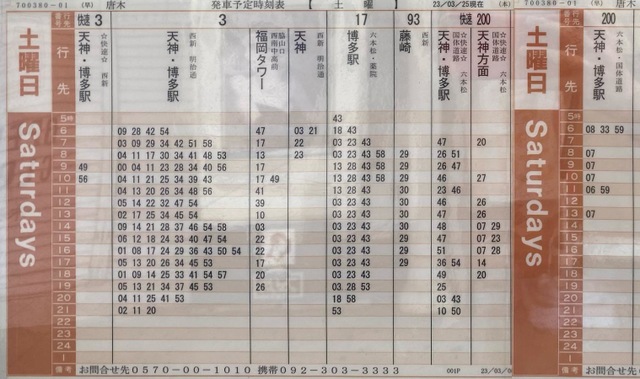 700380-01 (早) 唐木 発車予定時刻表 【 土 曜 】 23/03/25現在 (木) 700380-01 (早) 唐木
行先 快速 3 3 17 93 快速 200 行先 200
土曜日 行先 ☆快速☆ 天神・博多駅 西新 天神・博多駅 西新 明治通 福岡タワー 脇山口 西南中高前 天神 西新 明治通 博多駅 六本松・薬院 藤崎 西新 ☆快速☆ 国体道路 天神・博多駅 六本松 ☆快速☆ 国体道路 天神方面 六本松 土曜日 行先 天神・博多駅 国体道路 六本松
Saturdays Saturdays
5時 43 5時
6 09 28 42 54 47 03 21 18 43 6 08 33 59
7 03 09 29 34 42 51 58 17 22 03 23 43 47 20 7
8 04 11 17 30 34 41 48 53 13 23 03 23 43 58 29 26 51 8 07
9 49 00 04 11 23 28 34 40 56 17 13 28 43 58 29 26 47 9 07
10 56 04 11 21 25 34 39 43 17 49 13 28 43 58 29 46 27 10 07
11 04 13 20 26 34 48 56 41 13 28 43 30 23 46 11 06 59
12 05 14 22 32 47 54 39 03 23 43 30 46 26 12
13 02 17 25 34 45 54 10 03 23 43 30 47 26 13 07
14 09 14 21 28 37 46 54 58 03 03 23 43 30 48 07 29 14
15 06 12 18 24 33 40 47 54 22 03 23 43 29 47 07 23 15
16 01 08 17 24 29 36 43 50 54 22 03 23 43 29 51 07 28 16
17 05 13 20 26 34 45 53 17 03 23 43 29 36 54 14 17
18 01 09 14 25 33 41 54 57 20 03 23 43 49 20 18
19 05 13 21 34 37 45 53 26 03 28 53 25 19
20 04 11 25 41 53 18 58 03 43 20
21 02 11 20 53 10 50 21
22 22
23 23
24 24
1 1
備考 お問合せ先0570-00-1010 携帯092-303-3333 001P 23/03/0 備考 お問合